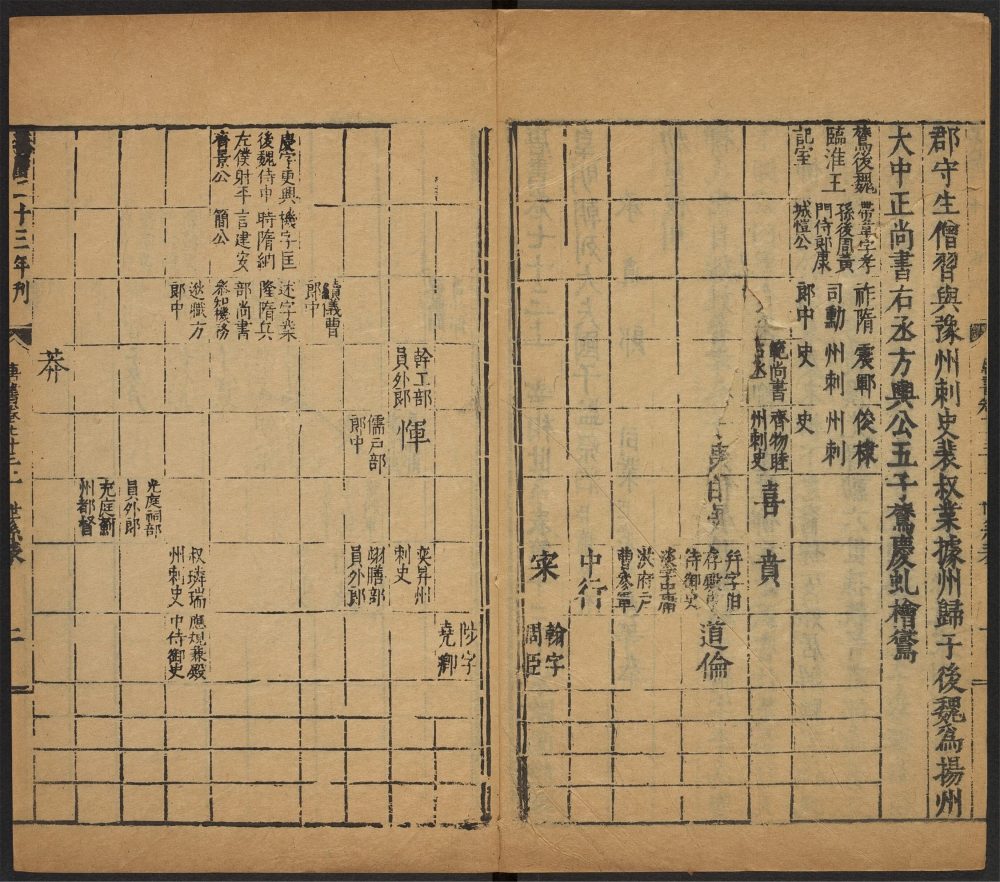 郡守生僧習與豫州刺史裴叔業據州歸于後魏為揚州
大中正尚書右丞方輿公五子鷟慶虬檜鷟
鷟後魏
臨淮王
記室
帶韋字孝
孫後周黃
門侍郎康
城愷公
祚隋
司勳
郎中
震郢
州刺
史
俊棣
州刺
史
範尚書
右丞
齊物睦
州刺史
喜
賁
幷字伯
存殿中
侍御史
淡字中庸
洪府戶
曹參軍
道倫
中行
寀
翰字
周臣
陟字
堯卿
幹工部
員外郎
惲
奕昇州
刺史
儒戶部
郎中
翊膳部
員外郎
績議曹
郎中
慶字更興
後魏侍中
左僕射平
齊景公
機字匡
時隋納
言建安
簡公
述字業
隆隋兵
部尚書
參知機務
逖職方
郎中
叔璘瑞
州刺史
應規兼殿
中侍御史
光庭祠部
員外郎
充庭薊
州都督
莽
二十三年刊
唐書卷七十三上
世系表
二